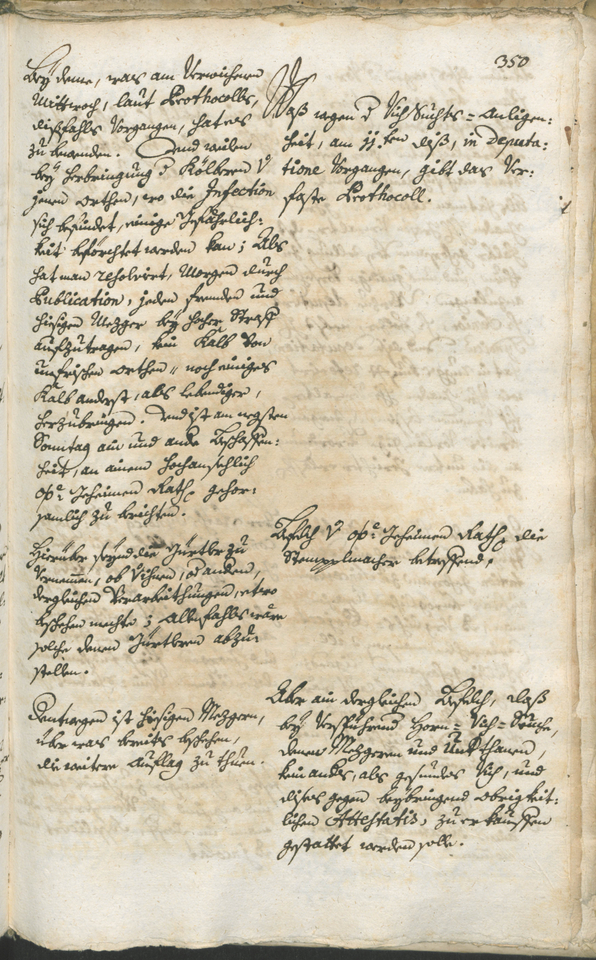 350
Bey deme, was am Verwichenen
Mittwoch, laut Prothocolls,
dißfahls Vorgangen, hat es
zu bewenden. Und weilen
bey herbringung d Kölberen V
jenen Orthen, wo die Infection
sich befindet, einige Gefährlich-
keit beförchtet werden kan; Als
hat man resolvirt, Morgen durch
Publication, jeden fremden und
hiesigen Mezger bey hoher Straff
aufzutragen, kein Kalb Von
unfrischen Orthen, noch einiges
Kalb anderst, als lebendiger,
herzubringen. Und ist am negsten
Sonntag ain und ande Beschaffen-
heit, an ainem Hochansehlich
Geheimen Rath gehor-
samlich zu berichten.
Hierüber seynd die Gürtler zu
Vernemmen, ob Vihnen, od anderen,
dergleichen Verarbeithungen, etwo
beschehen mechte; Allenfahls wäre
solche denen Gürtleren abzu-
stellen.
Dentwegen ist hiesigen Mezgern,
über was bereits beschehen,
die weitere Auflag zu thuen.
Waß wegen d Vich Suchts-Anligen-
heit, am 11ten diß, in Deputa-
tione Vorgangen, gibt das Ver-
faste Prothocoll.
Befelch V Geheimen Rath die
Stempplmacher betreffend,
Aber ain dergleichen Befelch, daß
bey Verspührend Horn-Vich-Seuche,
denen Mezgeren und Unterthanen,
kein andes, als gesundes Vich, und
dises gegen beybringend obrigkeit-
lichen Attestatis, zu erkauffen
gestattet werden solle.